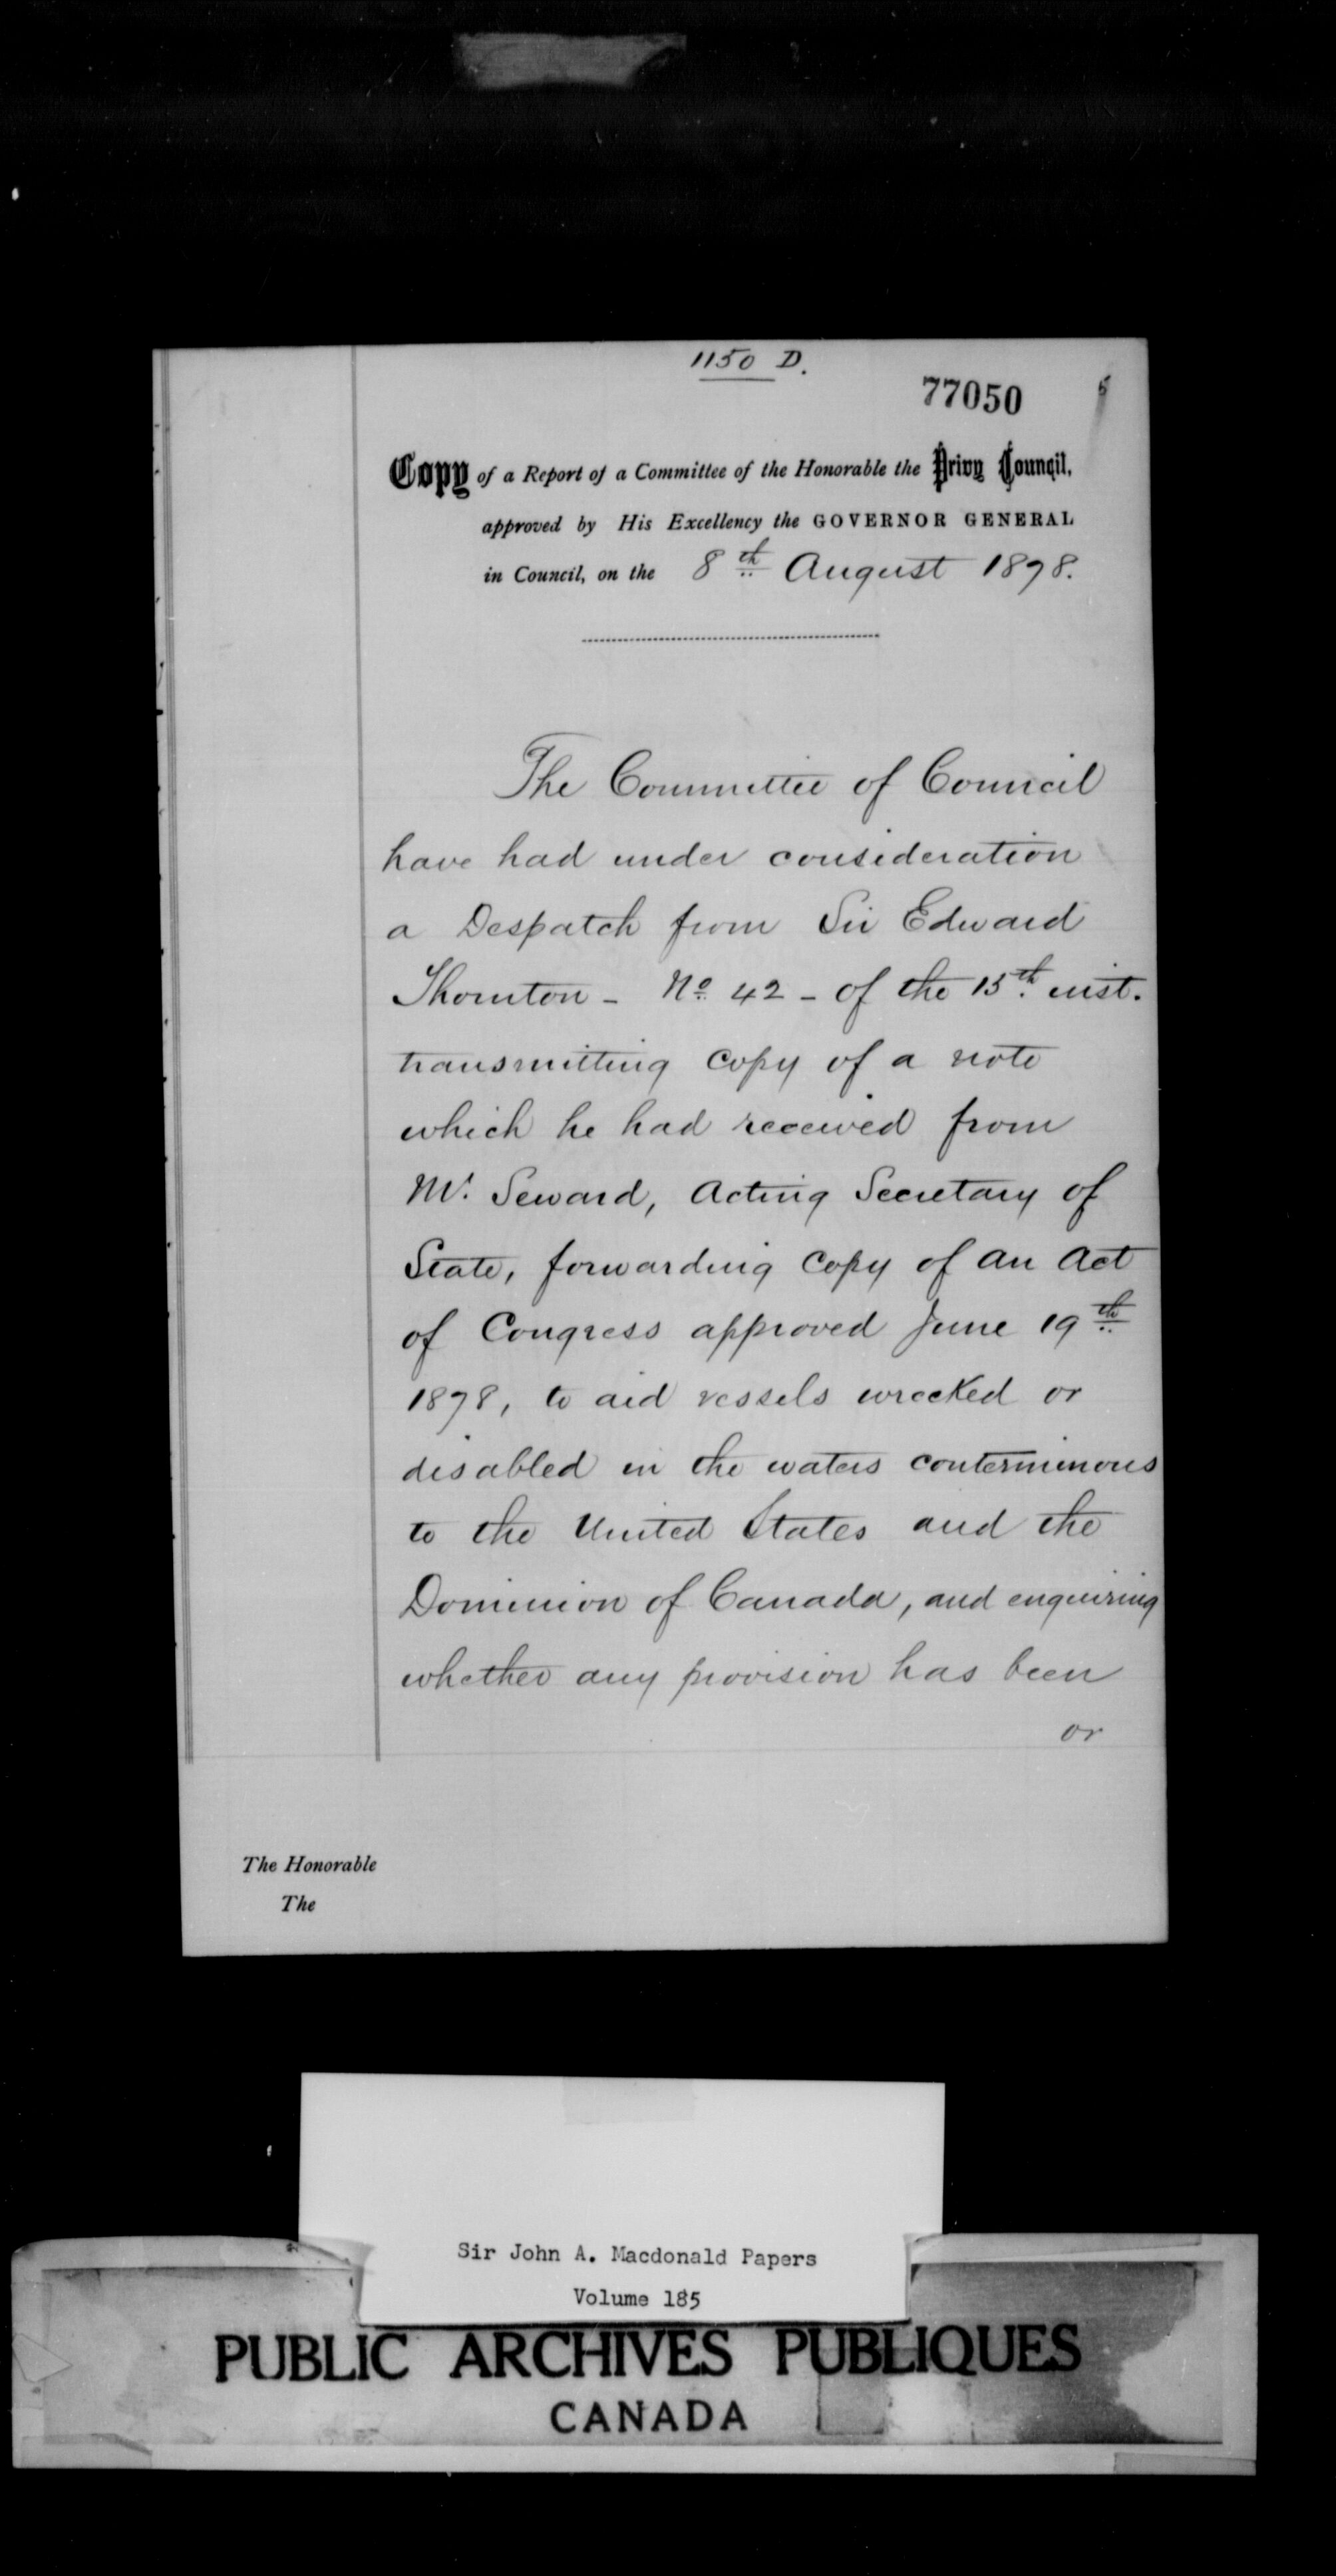 1150 D.
77050
Copy of a Report of a Committee of the Honorable the Privy Council,
approved by His Excellency the GOVERNOR GENERAL
in Council, on the 8th August 1878.
The Committee of Council
have had under consideration
a Despatch from Sir Edward
Thornton - No. 42 - of the 15th. inst.
transmitting copy of a note
which he had received from
Mr. Seward, Acting Secretary of
State, forwarding copy of an Act
of Congress approved June 19th
1878, to aid vessels wrecked or
disabled in the waters conterminous
to the United States and the
Dominion of Canada, and enquiring
whether any provision has been
or
The Honorable
The
Sir John A. Macdonald Papers
Volume 185
PUBLIC ARCHIVES PUBLIQUES
CANADA